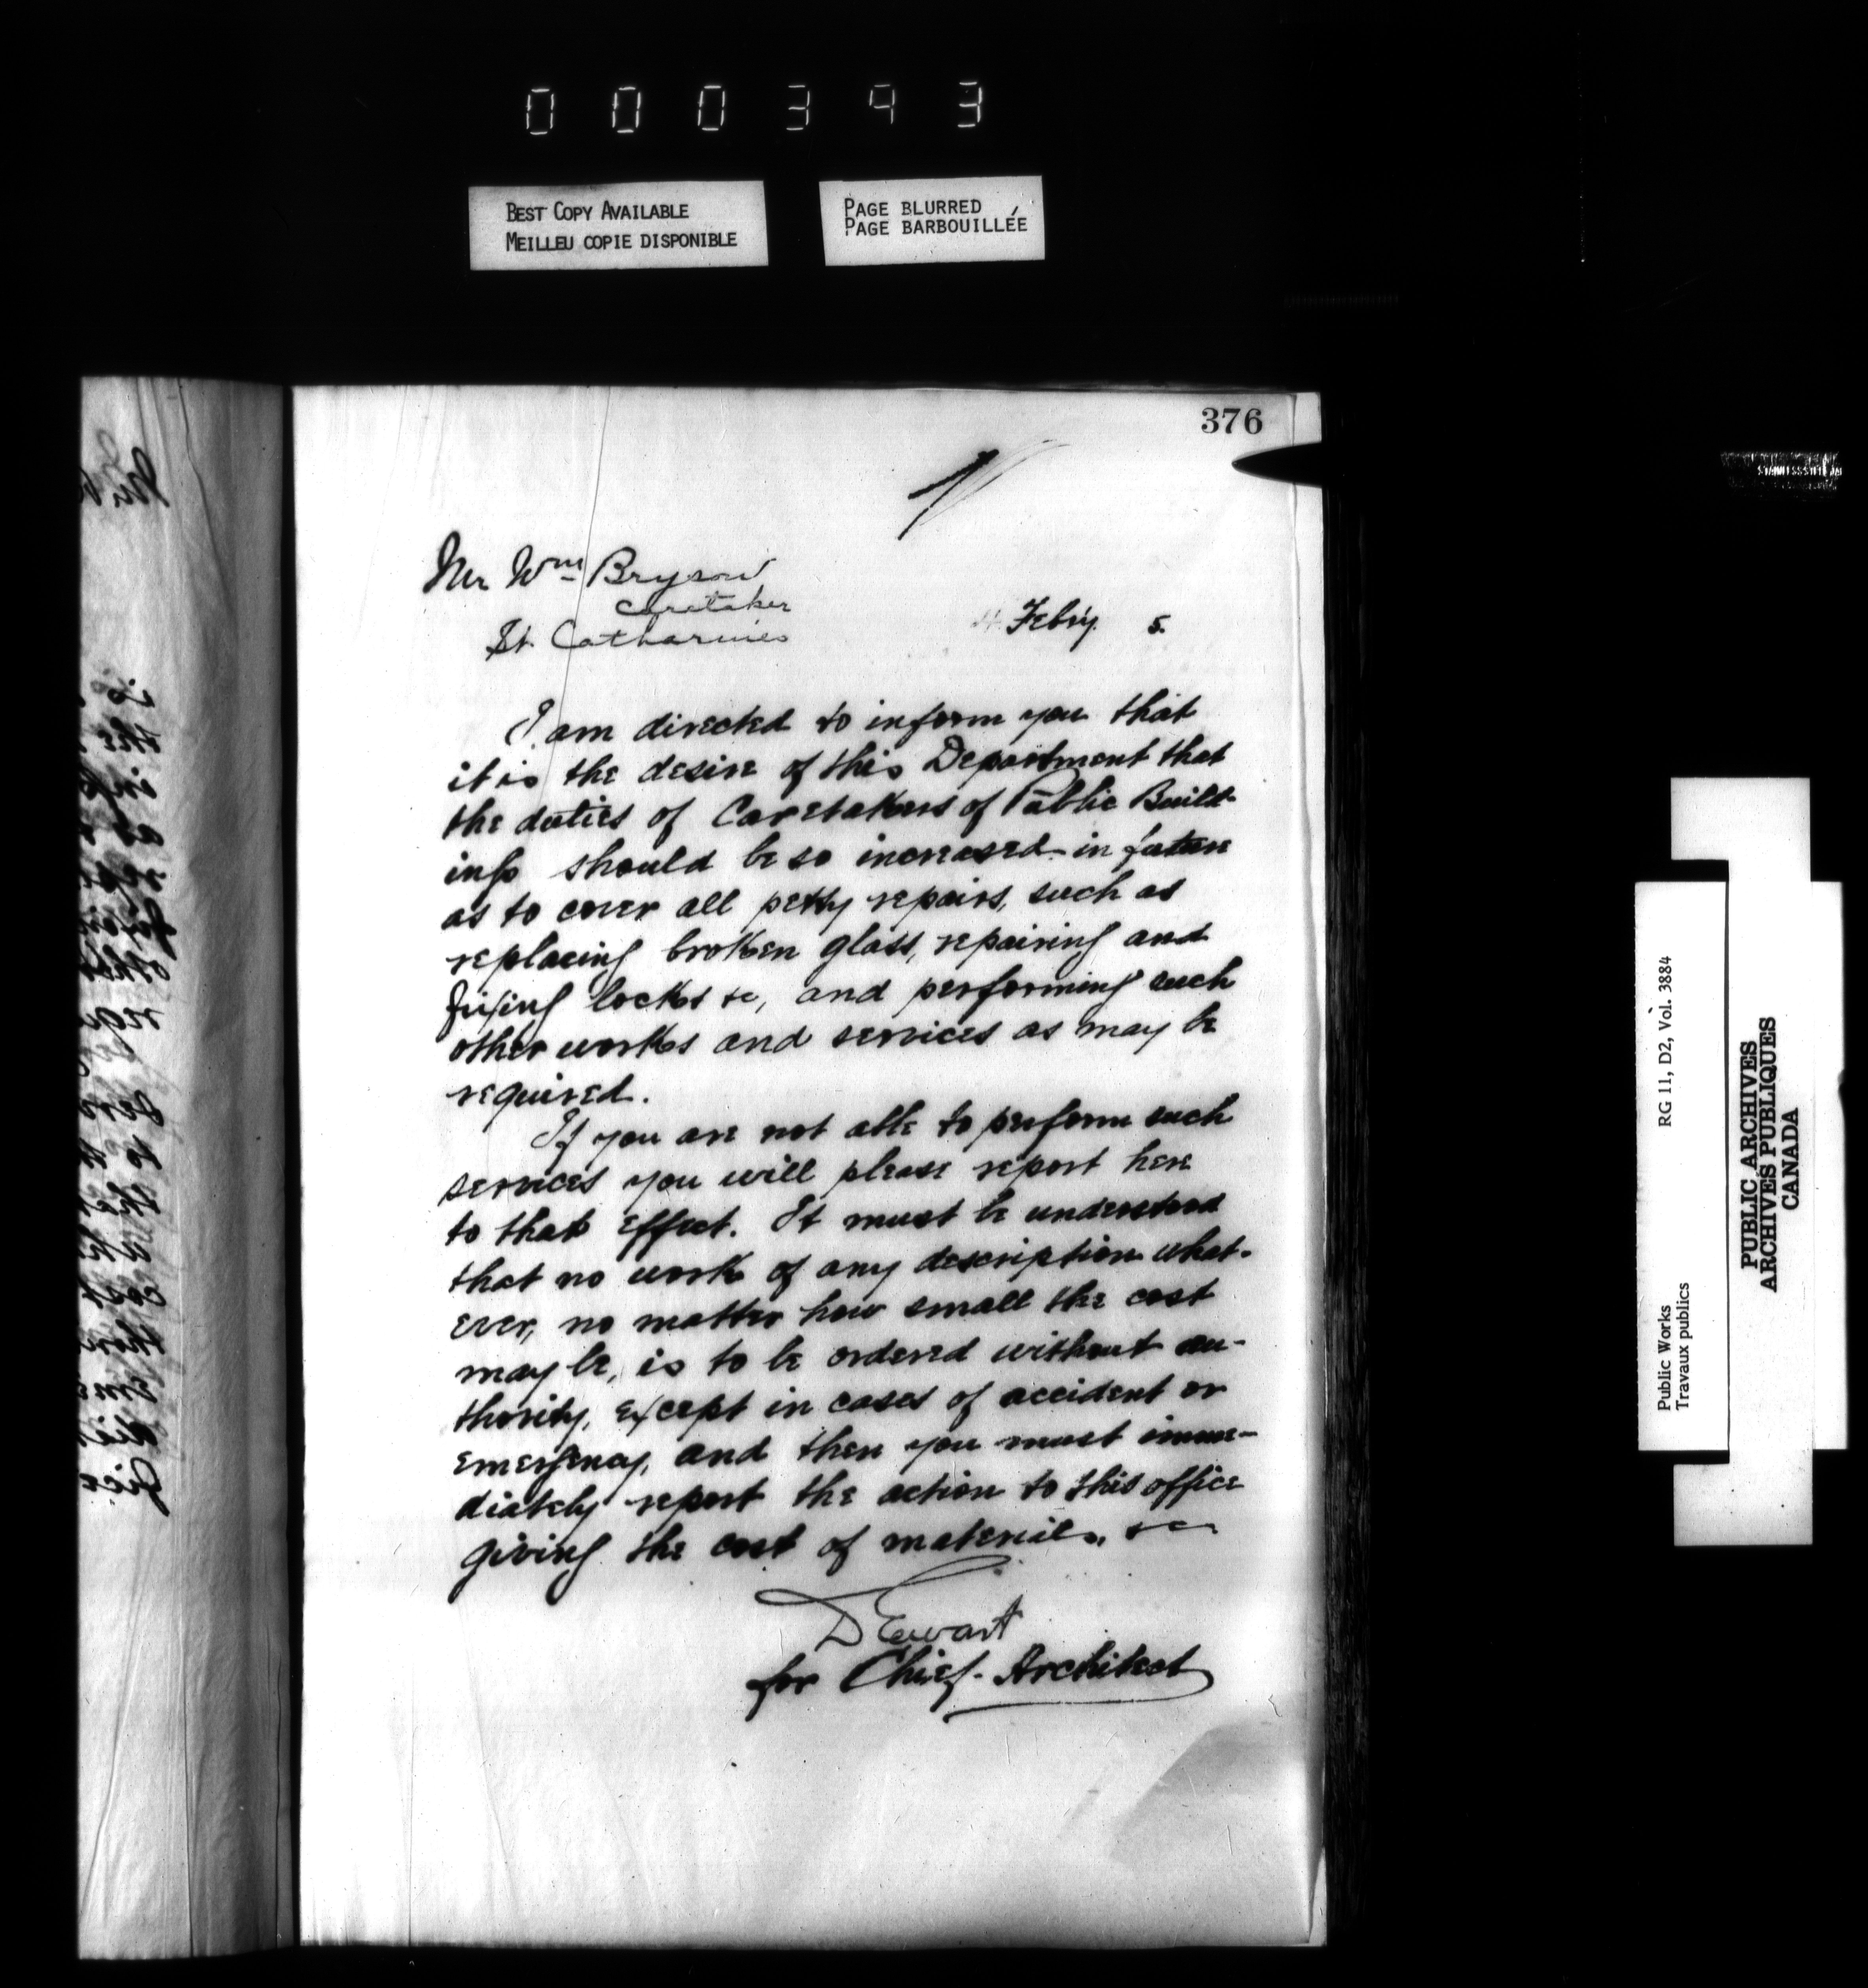 000393
BEST COPY AVAILABLE
MEILLEU COPIE DISPONIBLE
PAGE BLURRED
PAGE BARBOUILLÉE
376
Mr Wm Bryson
Caretaker
St. Catharines
Febry. 5.
I am directed to inform you that
it is the desire of this Department that
the duties of Caretakers of Public Build-
ings should be so increased in future
as to cover all petty repairs, such as
replacing broken glass, repairing and
fixing locks &c, and performing such
other works and services as may be
required.
If you are not able to perform such
services you will please report here
to that effect. It must be understood
that no work of any description what-
ever, no matter how small the cost
may be, is to be ordered without au-
thority, except in cases of accident or
emergency, and then you must imme-
diately report the action to this office
giving the cost of materials, &c
D Ewart
for Chief Architect
Public Works
Travaux publics
RG 11, D2, Vol. 3884
PUBLIC ARCHIVES
ARCHIVES PUBLIQUES
CANADA